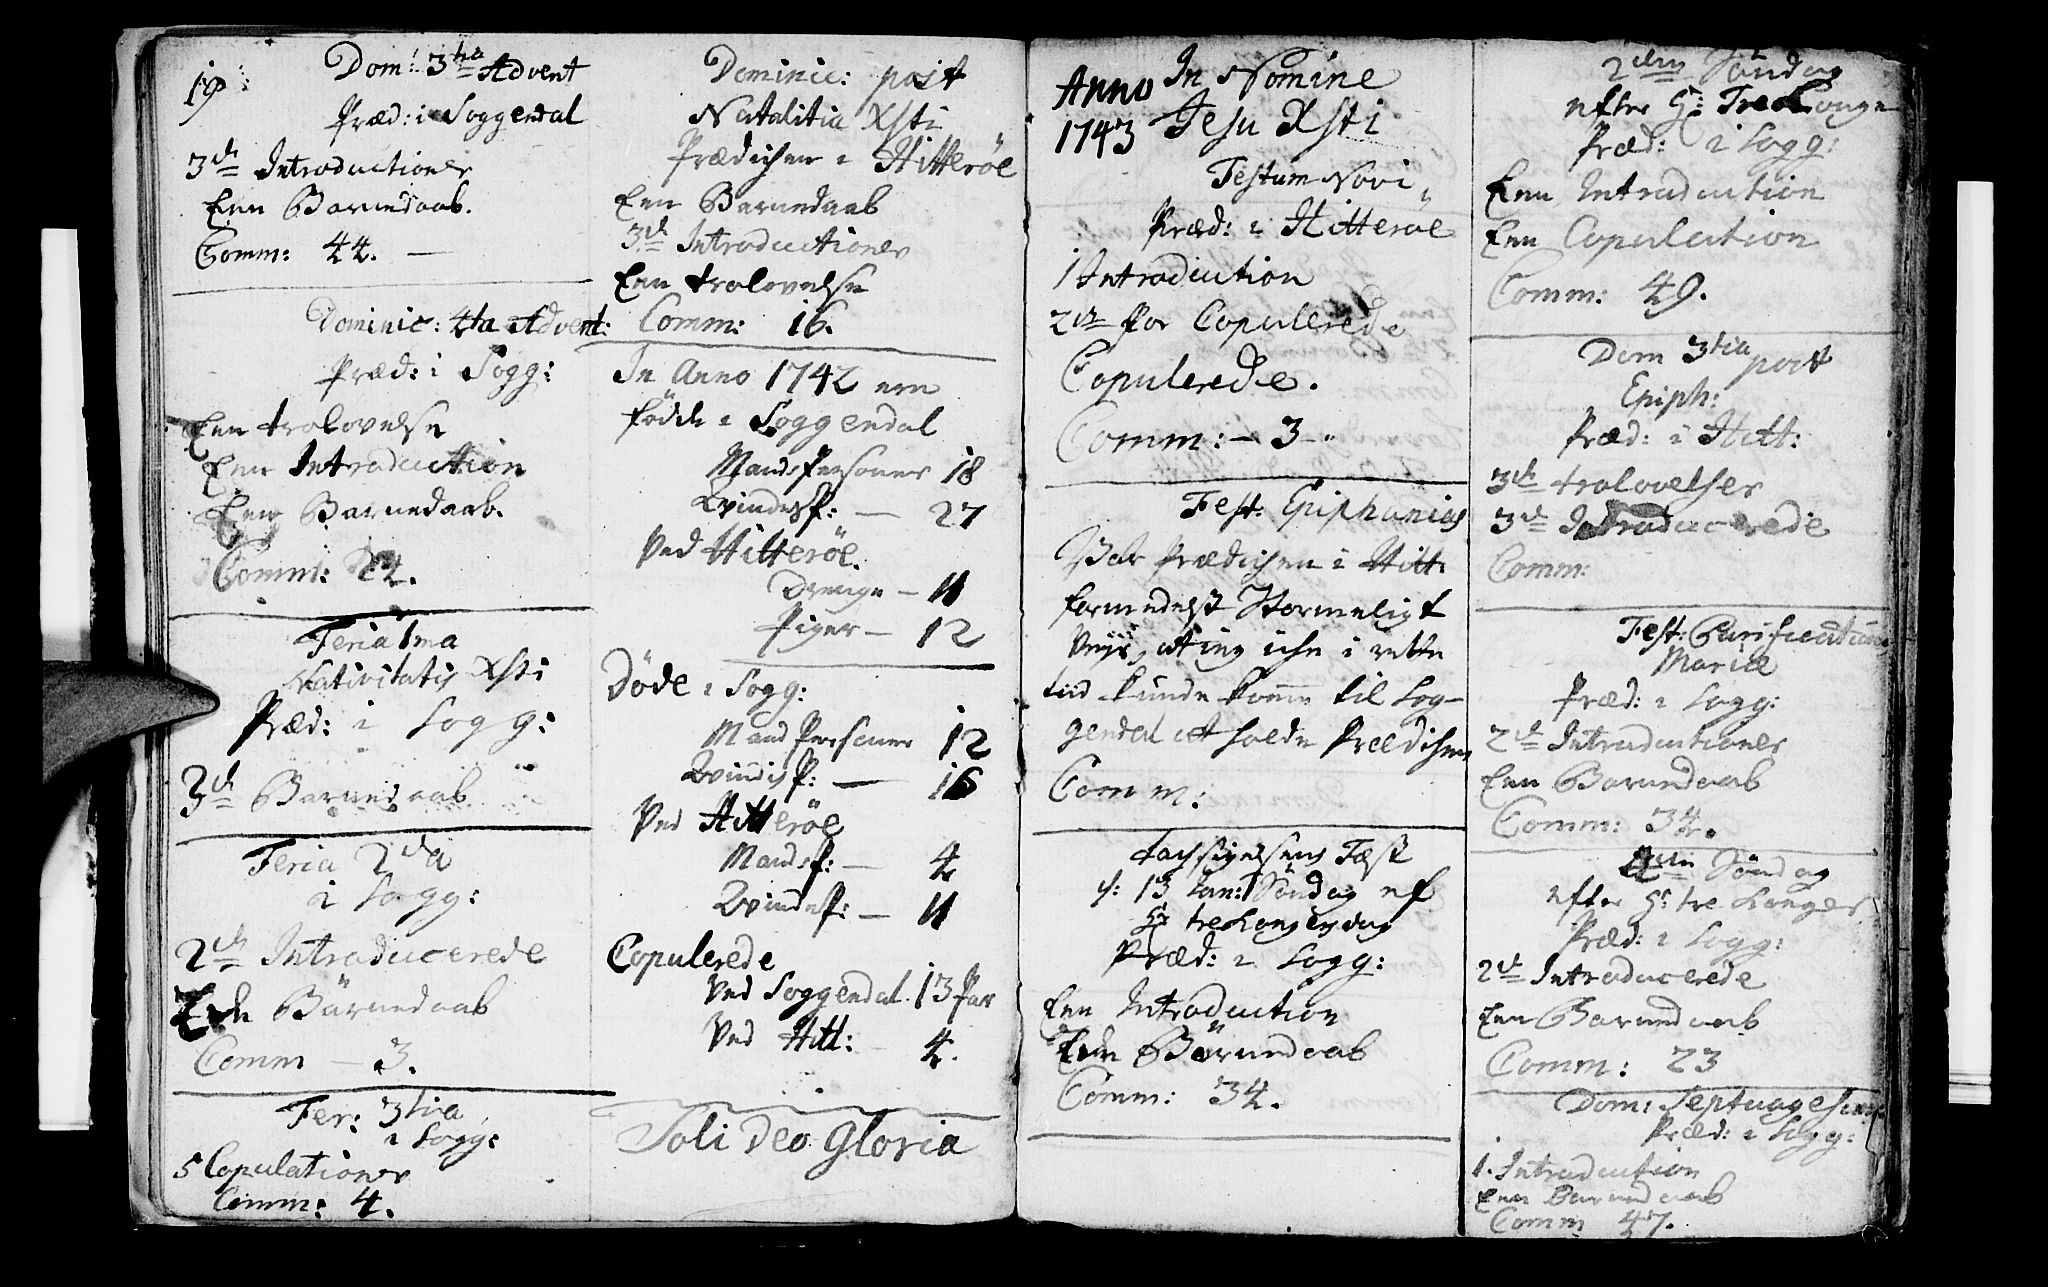 19
Dom: 3tia Advent
Præd: i Soggendal
3de Introductioner
Een Barnedaab.
Comm: 44. —
Dominic: 4ta Advent:
Præd: i Sogg:
Een trolovelse
Een Introduction
Een Barnedaab.
Comm: 22.
Feria 1ma
Nativitatis Xsti
Præd: i Sogg:
3de Barnedaab
Feria 2da
i Sogg:
2de Introducerede
Een Barnedaab
Comm — 3.
Fer: 3tia
i Sogg:
5 Copulationer
Comm: 4.
Dominic: post
Natalitia Xsti
Prædichen i Hitterøe
Een Barnedaab
3de Introductioner
Een trolovelse
Comm: 16.
In Anno 1742 ere
födde i Soggendal
Mands Personer 18
Qvindesp: — 27
Ved Hitteröe.
Drenge — 11
Piger — 12
Döde i Sogg:
Mand Personer 12
Qvindisp: — 16
Ved Hitteröe
Mandsp: — 4
Qvindesp: — 11
Copulerede
Ved Soggendal. 13 Par
Ved Hitt: 4.
Soli Deo Gloria
Anno 1743
In Nomine
Jesu Xsti
Festum Novi
Præd: i Hitterøe
1 Introduction
2de par Copulerede
Copulerede.
Comm: — 3 —
Fest: Epiphanias
Var Prædichen i Hitt:
formedelst Stormeligt
Veyr, at jeg iche i rette
tiid kunde komme til Sog-
gendal at holde Prædichen
Comm:
Tachsigelsens Fæst
d: 13 Jan: Söndag ef
H: tre Kongers dag
Præd: i Sogg:
Een Introduction
Een Barnedaab
Comm: 34.
2den Söndag
efter H: Tre Konge
Præd: i Sogg:
Een Introduction
Een Copulation
Comm: 49.
Dom 3tia post
Epiph:
Præd: i Hitt:
3de trolovelser
3de Introducerede
Comm:
Fest: Purificationis
Mariæ
Præd: i Sogg:
2de Introductioner
Een Barnedaab
Comm: 34.
Söndag
efter H: tre Konger
Præd: i Sogg:
2de Introducerede
Een Barnedaab
Comm: 23
Dom: Septuagesima
Præd: i Sogg:
1. Introduction
Een Barnedaab
Comm 47.